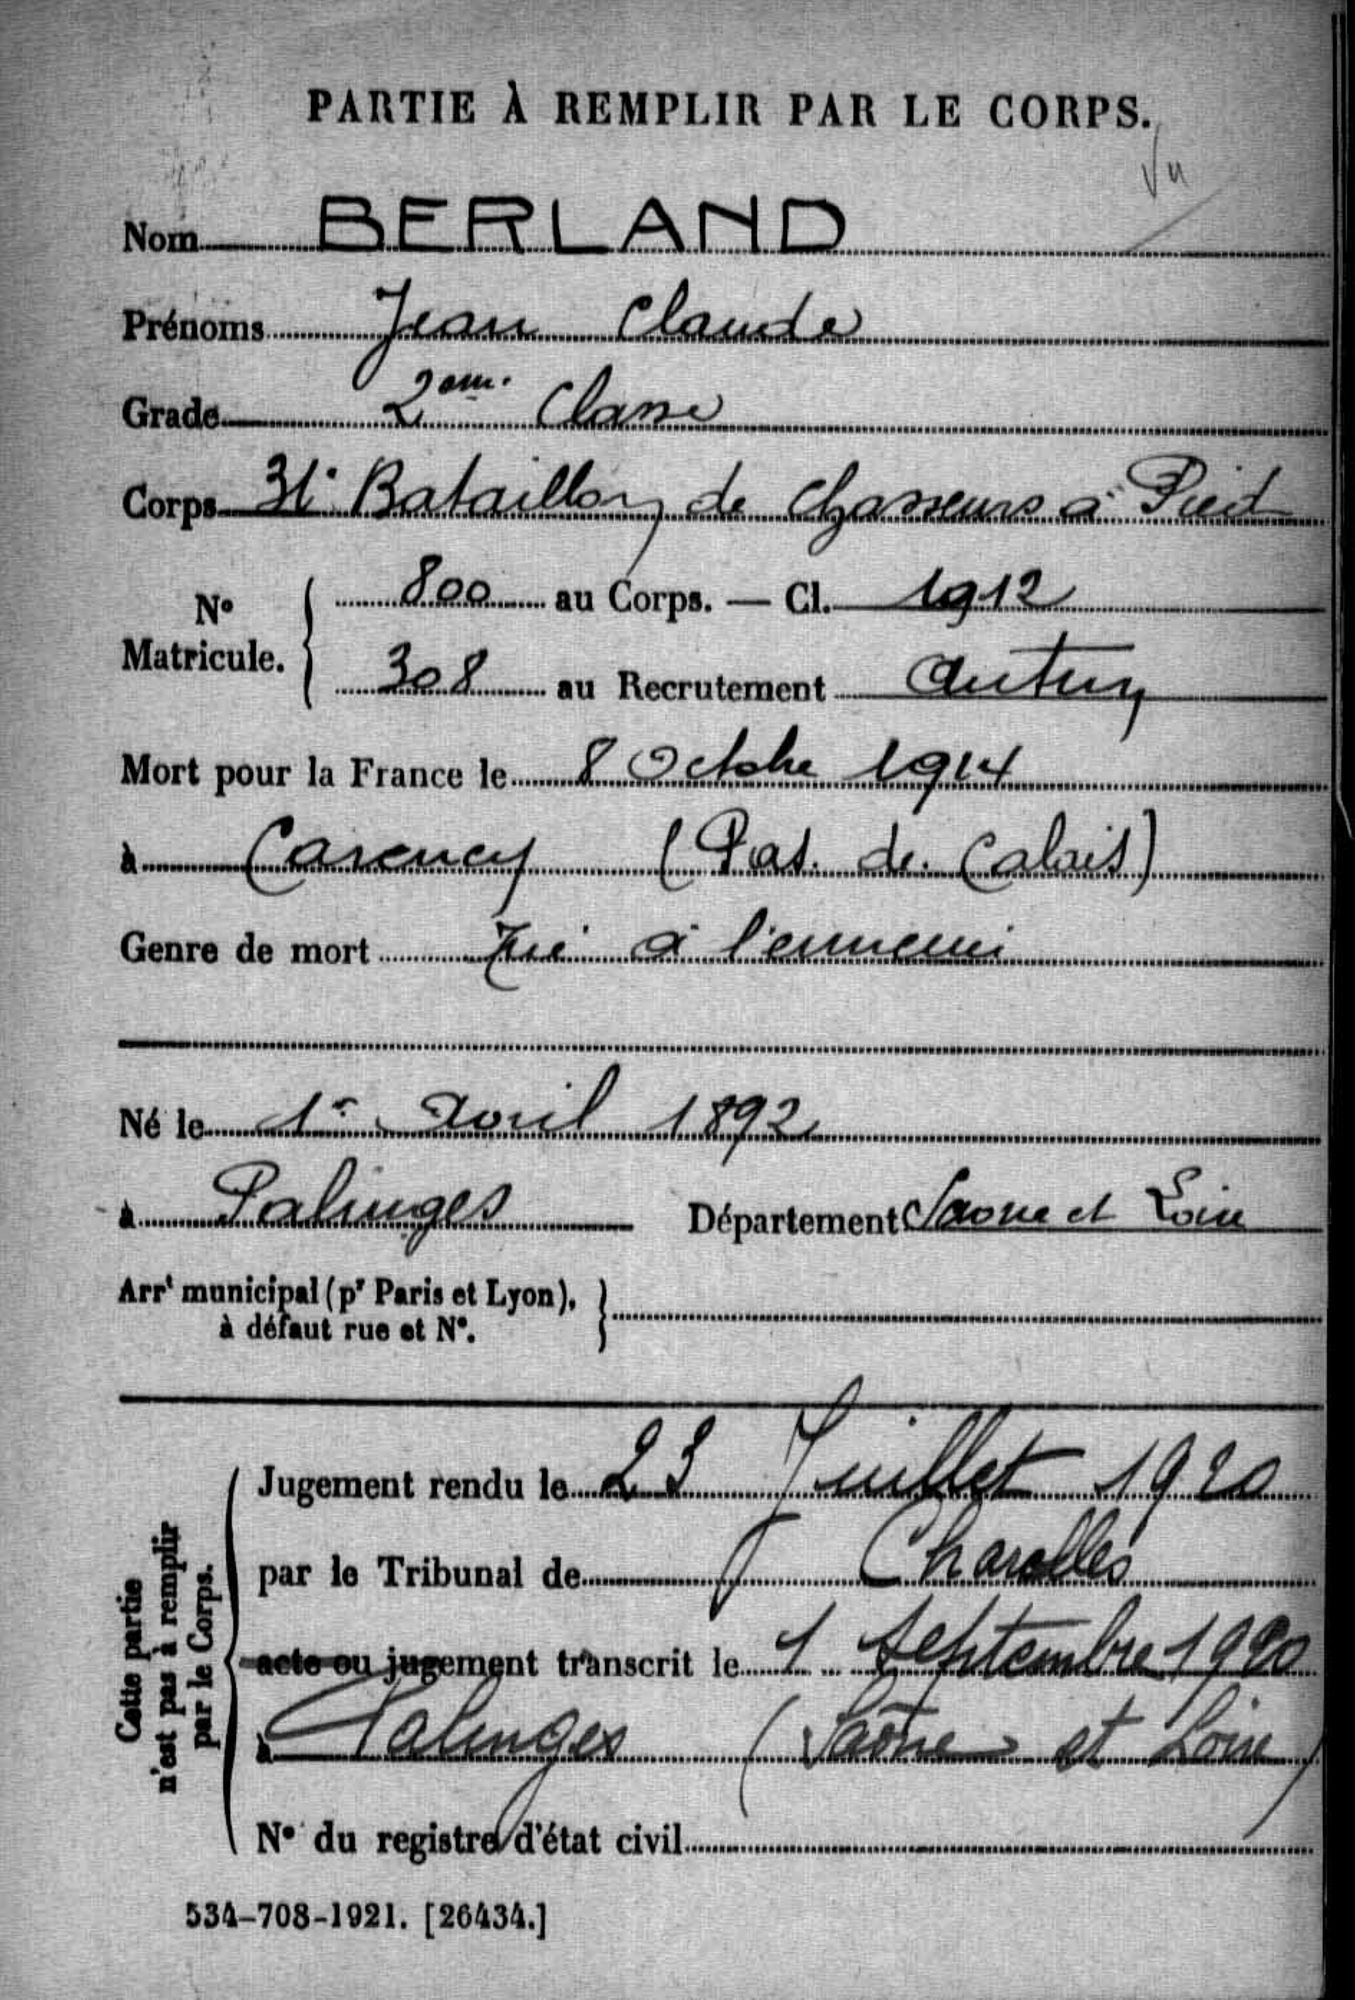 PARTIE À REMPLIR PAR LE CORPS.
Vu
Nom BERLAND
Prénoms Jean Claude
Grade 2ème Classe
Corps 31e Bataillon de Chasseurs à Pied
N° Matricule. { 800 au Corps. — Cl. 1912
308 au Recrutement Autun
Mort pour la France le 8 Octobre 1914
à Carency (Pas. de. Calais)
Genre de mort Tué à l'ennemi
Né le 1er Avril 1892
à Palinges Département Saone et Loire
Arrt municipal (pr Paris et Lyon), }
à défaut rue et N°.
Cette partie
n'est pas à remplir
par le Corps.
Jugement rendu le 23 Juillet 1920
par le Tribunal de Charolles
acte ou jugement transcrit le 1 Septembre 1920
à Palinges (Saône et Loire)
N° du registre d'état civil
534-708-1921. [26434.]